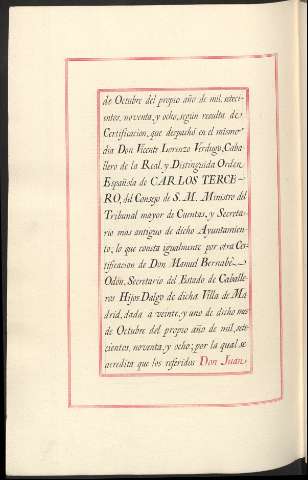 de Octubre del propio año de mil, seteci-
entos, noventa, y ocho, segun resulta de
Certificacion, que despachó en el mismo
dia Don Vicente Lorenzo Verdugo, Caba-
llero de la Real, y Distinguida Orden
Española de CARLOS TERCE-
RO, del Consejo de S. M. Ministro del
Tribunal mayor de Cuentas, y Secreta-
rio mas antiguo de dicho Ayuntamien-
to; lo que consta igualmente por otra Cer-
tificacion de Don Manuel Bernabé
Odón, Secretario del Estado de Caballe-
ros Hijos Dalgo de dicha Villa de Ma-
drid, dada a veinte, y uno de dicho mes
de Octubre del propio año de mil, sete-
cientos, noventa, y ocho; por la qual se
acredita que los referidos Don Juan